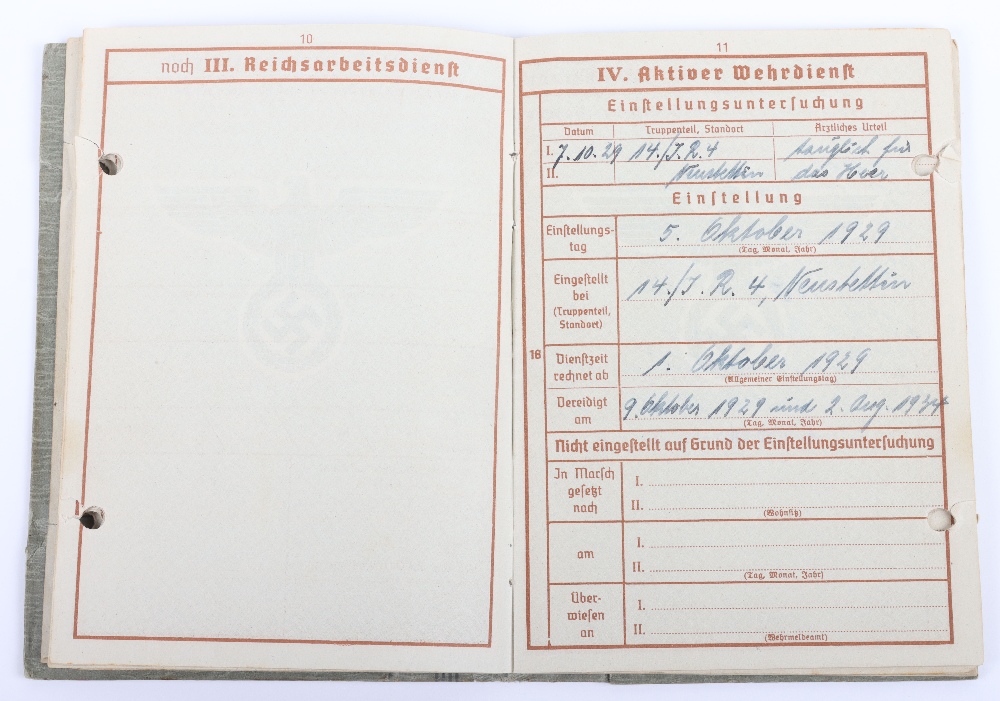 10
noch III. Reichsarbeitsdienst
11
IV. Aktiver Wehrdienst
Einstellungsuntersuchung
Datum Truppenteil, Standort Ärztliches Urteil
I. 7.10.29 14./J.R.4 tauglich für
II. Neustettin das Heer
Einstellung
Einstellungs-
tag
5. Oktober 1929
(Tag, Monat, Jahr)
Eingestellt
bei
(Truppenteil,
Standort)
14./J.R. 4, Neustettin
18
Dienstzeit
rechnet ab
1. Oktober 1929
(Allgemeiner Einstellungstag)
Vereidigt
am
9. Oktober 1929 und 2. Aug. 1934
(Tag, Monat, Jahr)
Nicht eingestellt auf Grund der Einstellungsuntersuchung
In Marsch
gesetzt
nach
I.
II.
(Wohnsitz)
am
I.
II.
(Tag, Monat, Jahr)
Über-
wiesen
an
I.
II.
(Wehrmeldeamt)